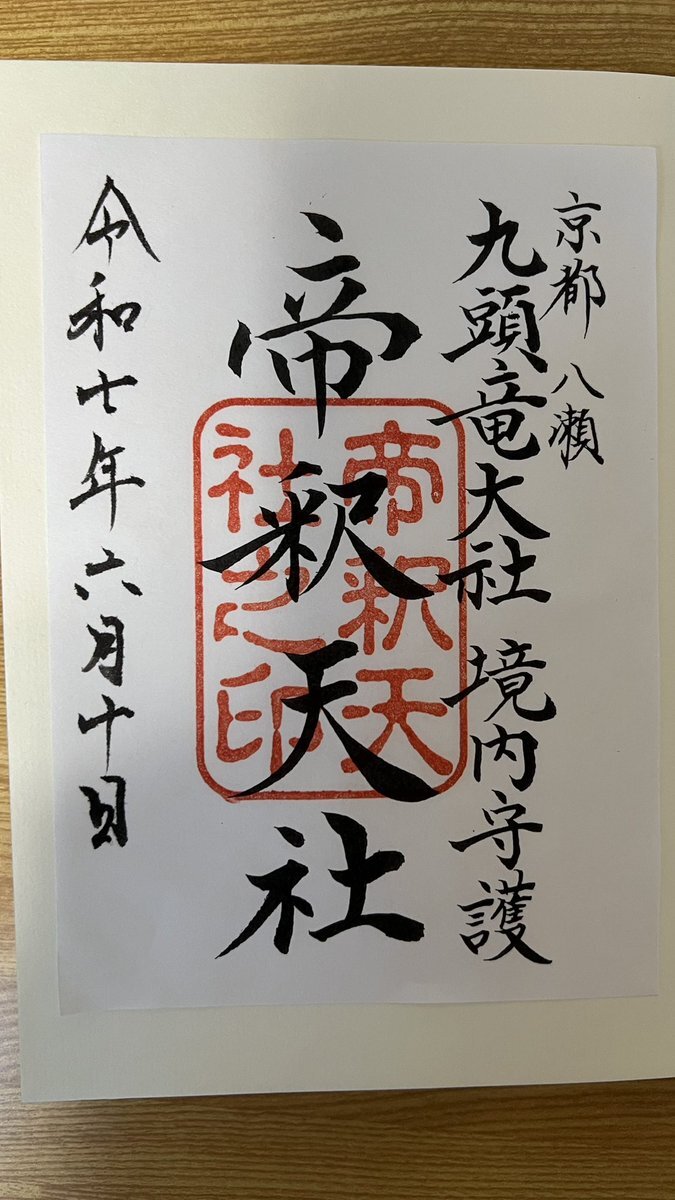 京都 八瀬
九頭竜大社 境内守護
帝釈天社
帝釈天
社之印
令和七年六月十日